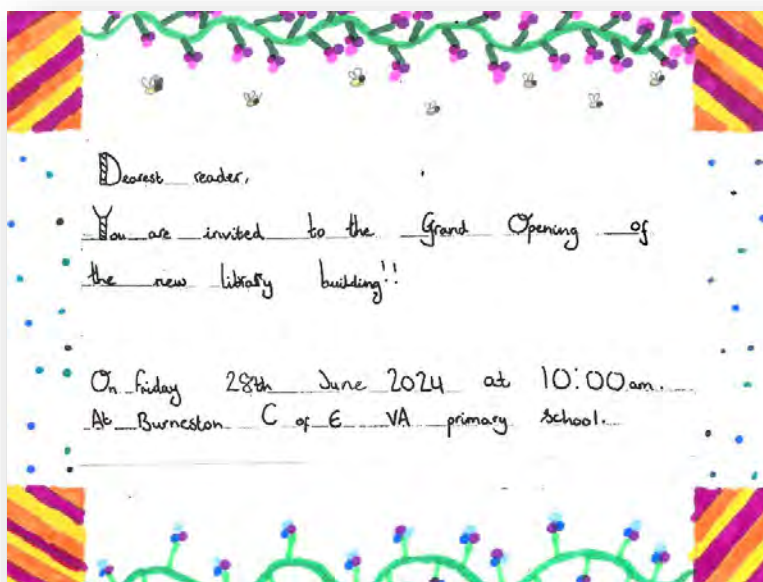 Dearest reader,
You are invited to the Grand Opening of
the new library building!!
On Friday 28th June 2024 at 10:00am.
At Burneston C of E VA primary school.